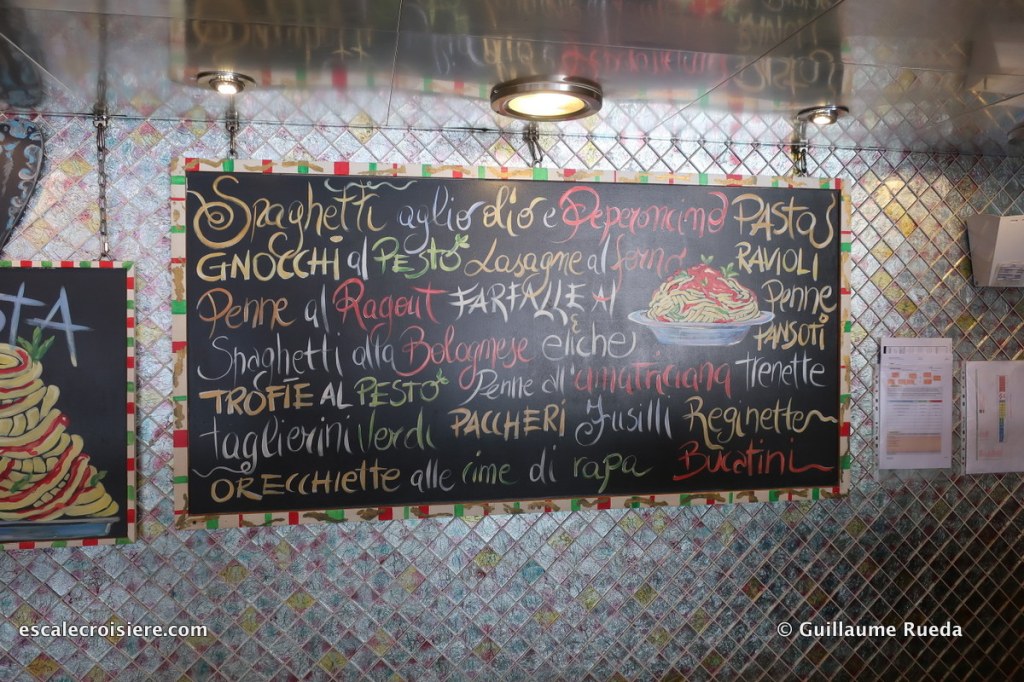 Spaghetti aglio olio e Peperoncino PASTA
GNOCCHI al PESTO Lasagne al forno RAVIOLI
Penne al Ragout FARFALLE Al Penne
PANSOTI
Spaghetti alla Bolognese eliche
TROFIE AL PESTO Penne all'amatriciana Trenette
taglierini Verdi PACCHERI Fusilli Reginette
ORECCHIETTE alle cime di rapa Bucatini
escalecroisiere.com
© Guillaume Rueda